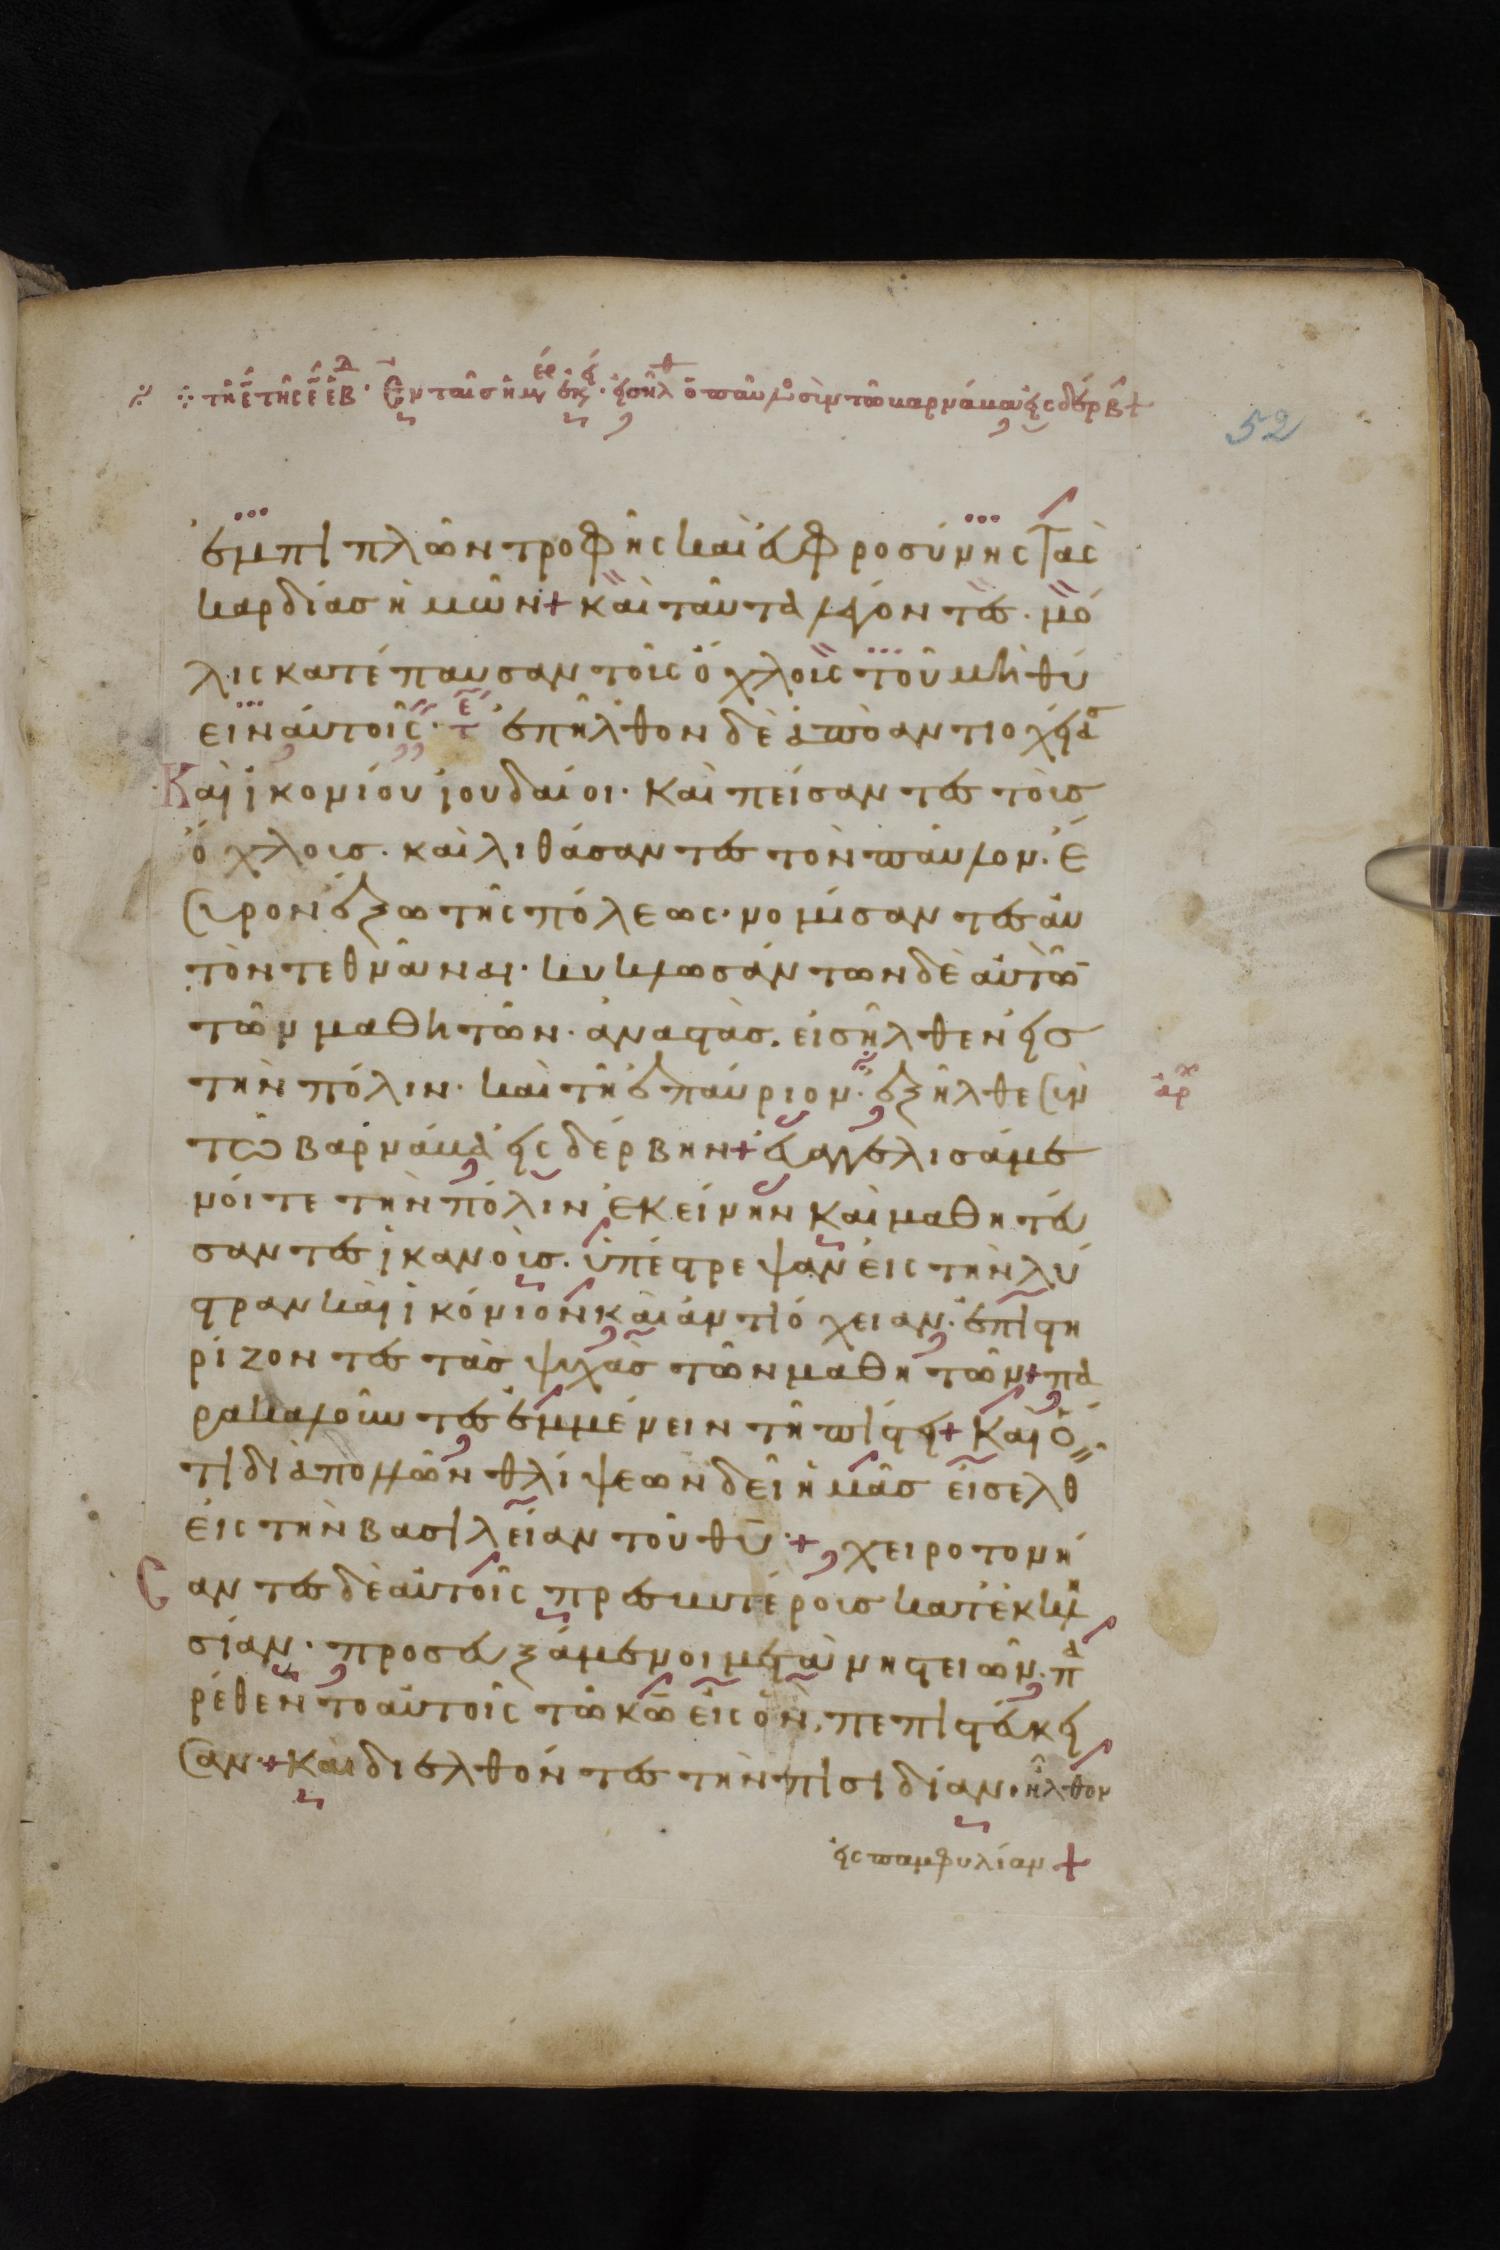 τῆ ε̄ τῆς ε̄ ἑβδ. Ἐν ταῖς ἡμέραις ἐκείναις. ἐξῆλθ ὁ παῦλος σὺν τῶ βαρνάβα εἰς δέρβην +
52
ἐμπιπλῶν τροφῆς καὶ εὐφροσύνης τὰς
καρδίας ἡμῶν + καὶ ταῦτα λέγοντες. μό
λις κατέπαυσαν τοῖς ὄχλοις τοῦ μὴ θύ
ειν αὐτοῖς. τε ἐπῆλθον δὲ ἀπὸ αντιοχείας
Καὶ ἰκονίου ἰουδαίοι. καὶ πείσαντες τοὺς
ὄχλους. καὶ λιθάσαντες τὸν παῦλον. ἔ
συρον ἔξω τῆς πόλεως. νομίσαντες αὐ
τὸν τεθνᾶναι. κυκλωσάντων δὲ αὐτῶ
τῶν μαθητῶν. ἀναστὰς. εἰσῆλθεν εἰς
τὴν πόλιν. καὶ τῆ ἐπαύριον. ἐξῆλθε σὺν
ἀρχ
τῶ βαρνάβα εἰς δέρβην + εὐαγγελισάμε
νοί τε τὴν πόλιν ἐκείνην καὶ μαθητεύ
σαντες ἱκανοὺς. ὑπέστρεψαν εἰς τὴν λύ
στραν καὶ ἰκόνιον καὶ ἀντιόχειαν. ἐπιστη
ρίζοντες τὰς ψυχὰς τῶν μαθητῶν + πα
ρακαλοῦντες ἐμμένειν τῆ πίστει + Καὶ ὅ
τι διὰ πολλῶν θλίψεων δεῖ ἡμᾶς εἰσελθ
εἰς τὴν βασιλείαν τοῦ θυ + χειροτονή
σαντες δὲ αὐτοῖς πρεσβυτέρους κατ ἐκκλη
σίαν. προσευξάμενοι μετὰ νηστειῶν. πα
ρέθεντο αὐτοὺς τῶ κω εἰς ὃν, πεπιστεύκει
σαν + Καὶ διελθόντες τὴν πισιδίαν. ἦλθον
εἰς παμφυλίαν +